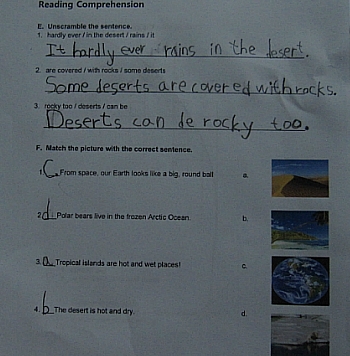 Reading Comprehension
E. Unscramble the sentence.
1. hardly ever / in the desert / rains / it
It hardly ever rains in the desert.
2. are covered / with rocks / some deserts
Some deserts are covered with rocks.
3. rocky too / deserts / can be
Deserts can de rocky too.
F. Match the picture with the correct sentence.
1. C From space, our Earth looks like a big, round ball a.
2. d Polar bears live in the frozen Arctic Ocean. b.
3. a Tropical islands are hot and wet places! c.
4. b The desert is hot and dry. d.